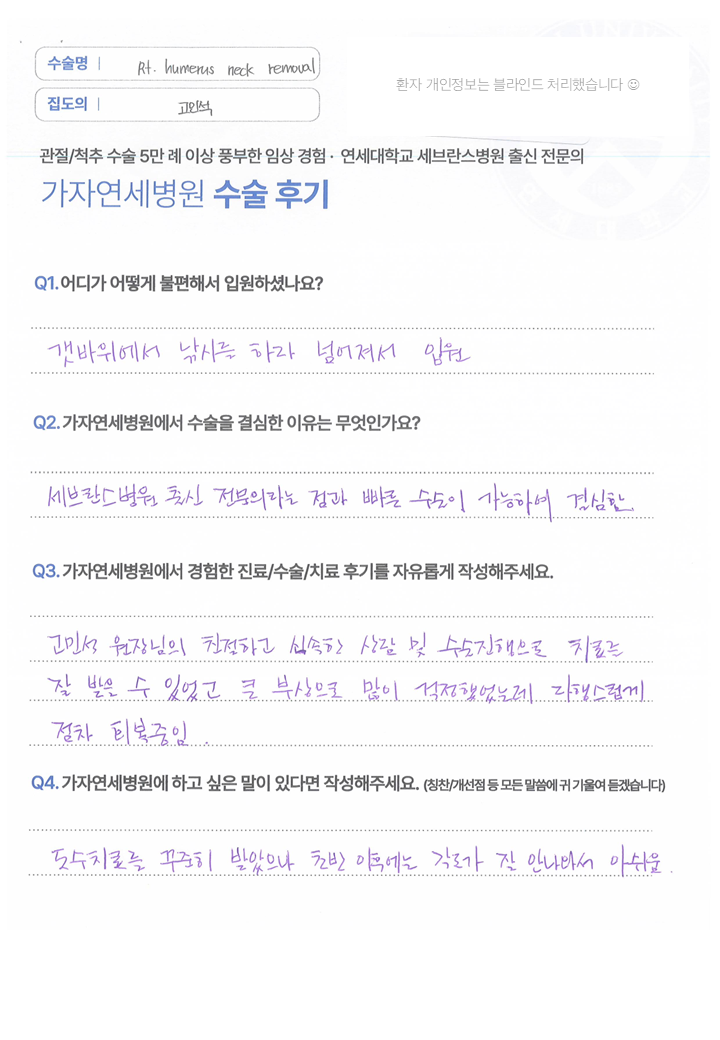 수술명 | Rt. humerus neck removal
환자 개인정보는 블라인드 처리했습니다 ☺
집도의 | 고민석
관절/척추 수술 5만 례 이상 풍부한 임상 경험 · 연세대학교 세브란스병원 출신 전문의
가자연세병원 수술 후기
Q1. 어디가 어떻게 불편해서 입원하셨나요?
갯바위에서 낚시를 하다 넘어져서 입원
Q2. 가자연세병원에서 수술을 결심한 이유는 무엇인가요?
세브란스병원 출신 전문의라는 점과 빠른 수술이 가능하여 결심함.
Q3. 가자연세병원에서 경험한 진료/수술/치료 후기를 자유롭게 작성해주세요.
고민석 원장님의 친절하고 신속한 상담 및 수술진행으로 치료를
잘 받을 수 있었고 큰 부상으로 많이 걱정했었는데 다행스럽게
점차 회복중임.
Q4. 가자연세병원에 하고 싶은 말이 있다면 작성해주세요. (칭찬/개선점 등 모든 말씀에 귀 기울여 듣겠습니다)
도수치료를 꾸준히 받았으나 초반 이후에는 각도가 잘 안나와서 아쉬움.